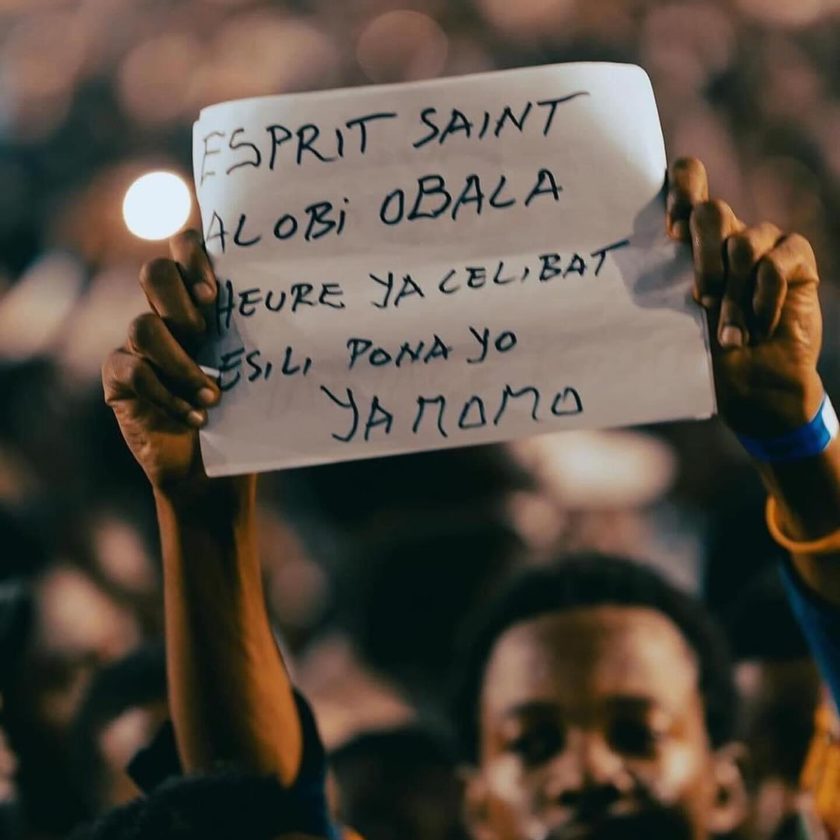 ESPRIT SAINT
ALOBi OBALA
HEURE YA CELIBAT
ESILI PONA YO
YA MOMO